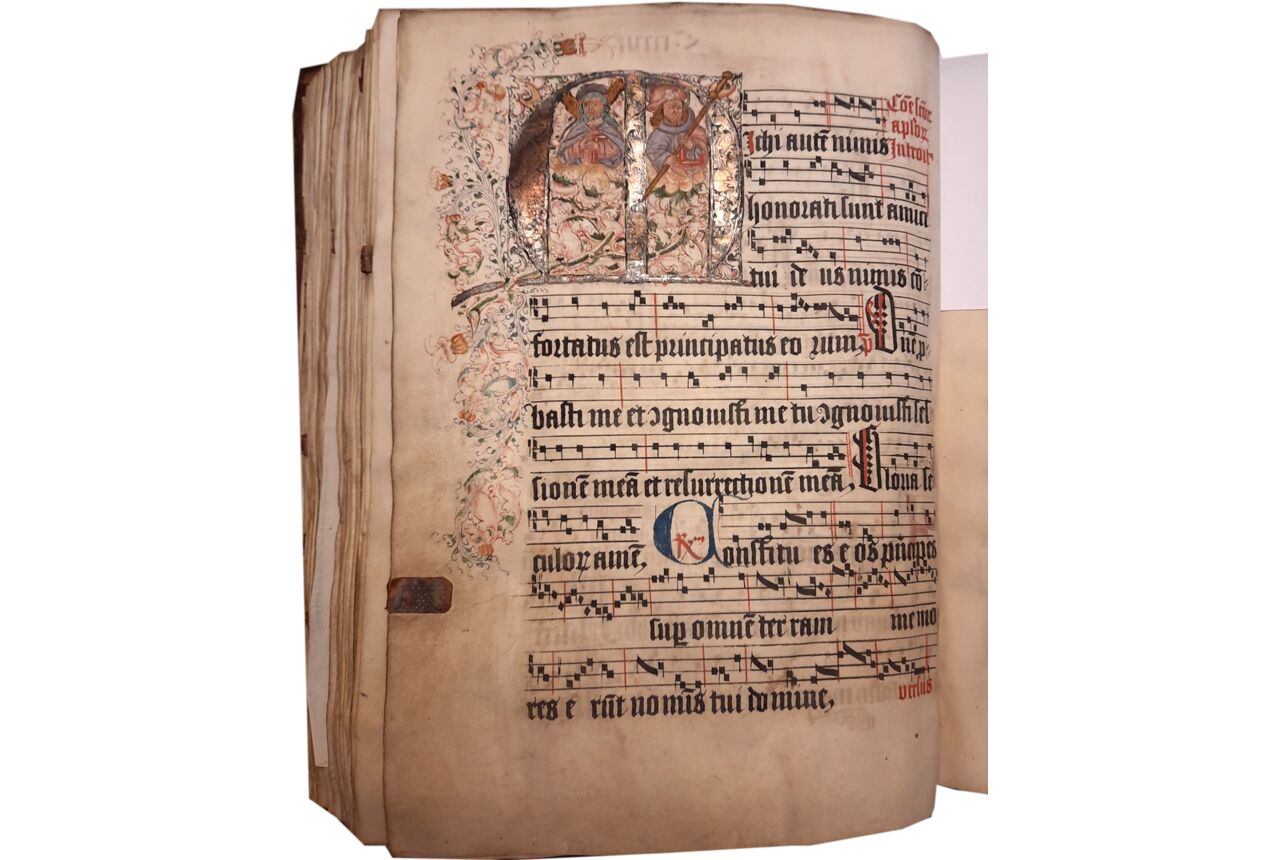 Cōē scōꝝ
apl'oꝝ
Michi autē nimis Introit⁹
honorati sunt amici
tui de us nimis cō-
fortatus est principatus eo rum, p̄ Dn̄e p-
basti me et ↄgnouisti me tu ↄgnouisti ses-
sionē meā et resurrectionē meā, Gloria se
culoꝝ amē, Constitu es e os prīcipes
sup omnē ter ram memo
res e rūt nomīs tui domine, versus